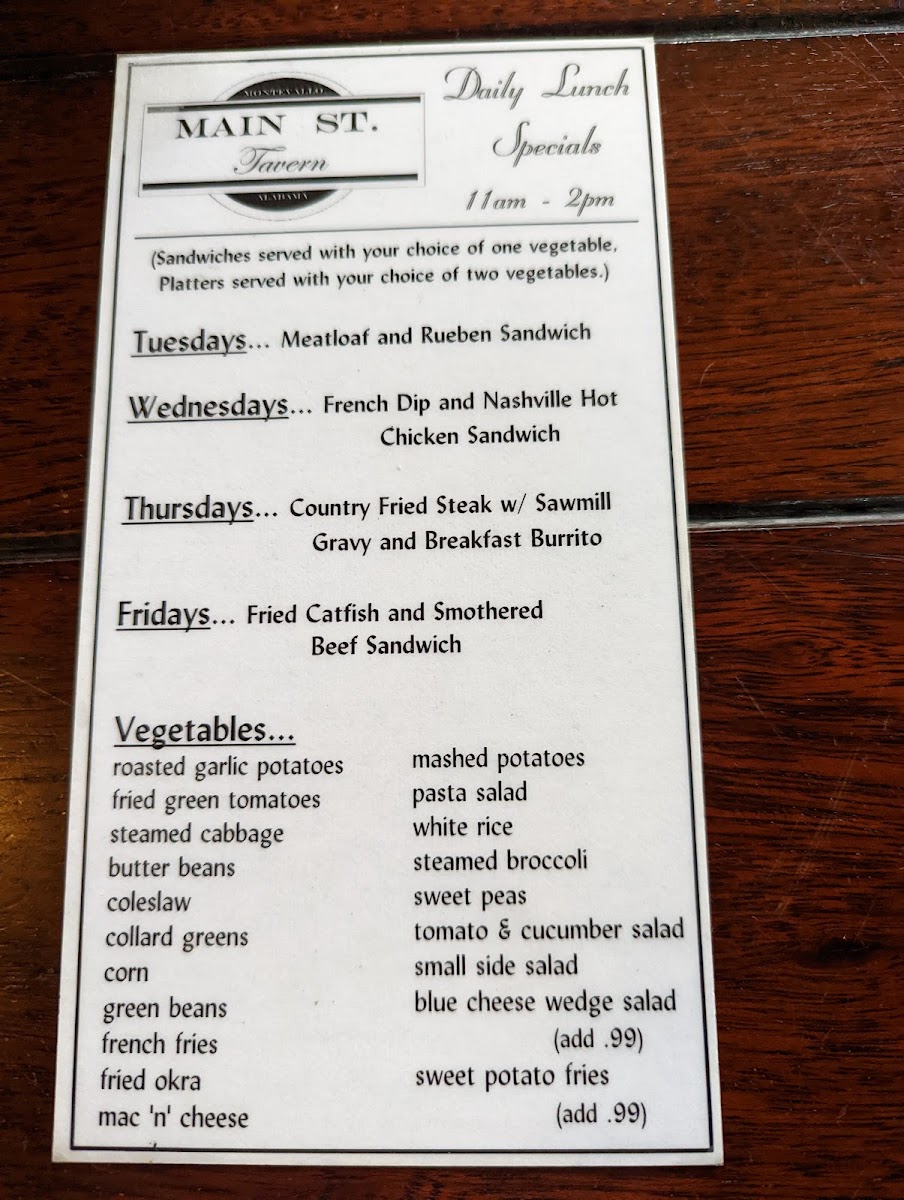 MONTEVALLO
MAIN ST.
Tavern
ALABAMA
Daily Lunch
Specials
11am - 2pm
(Sandwiches served with your choice of one vegetable,
Platters served with your choice of two vegetables.)
Tuesdays... Meatloaf and Rueben Sandwich
Wednesdays... French Dip and Nashville Hot
Chicken Sandwich
Thursdays... Country Fried Steak w/ Sawmill
Gravy and Breakfast Burrito
Fridays... Fried Catfish and Smothered
Beef Sandwich
Vegetables...
roasted garlic potatoes
fried green tomatoes
steamed cabbage
butter beans
coleslaw
collard greens
corn
green beans
french fries
fried okra
mac 'n' cheese
mashed potatoes
pasta salad
white rice
steamed broccoli
sweet peas
tomato & cucumber salad
small side salad
blue cheese wedge salad
(add .99)
sweet potato fries
(add .99)